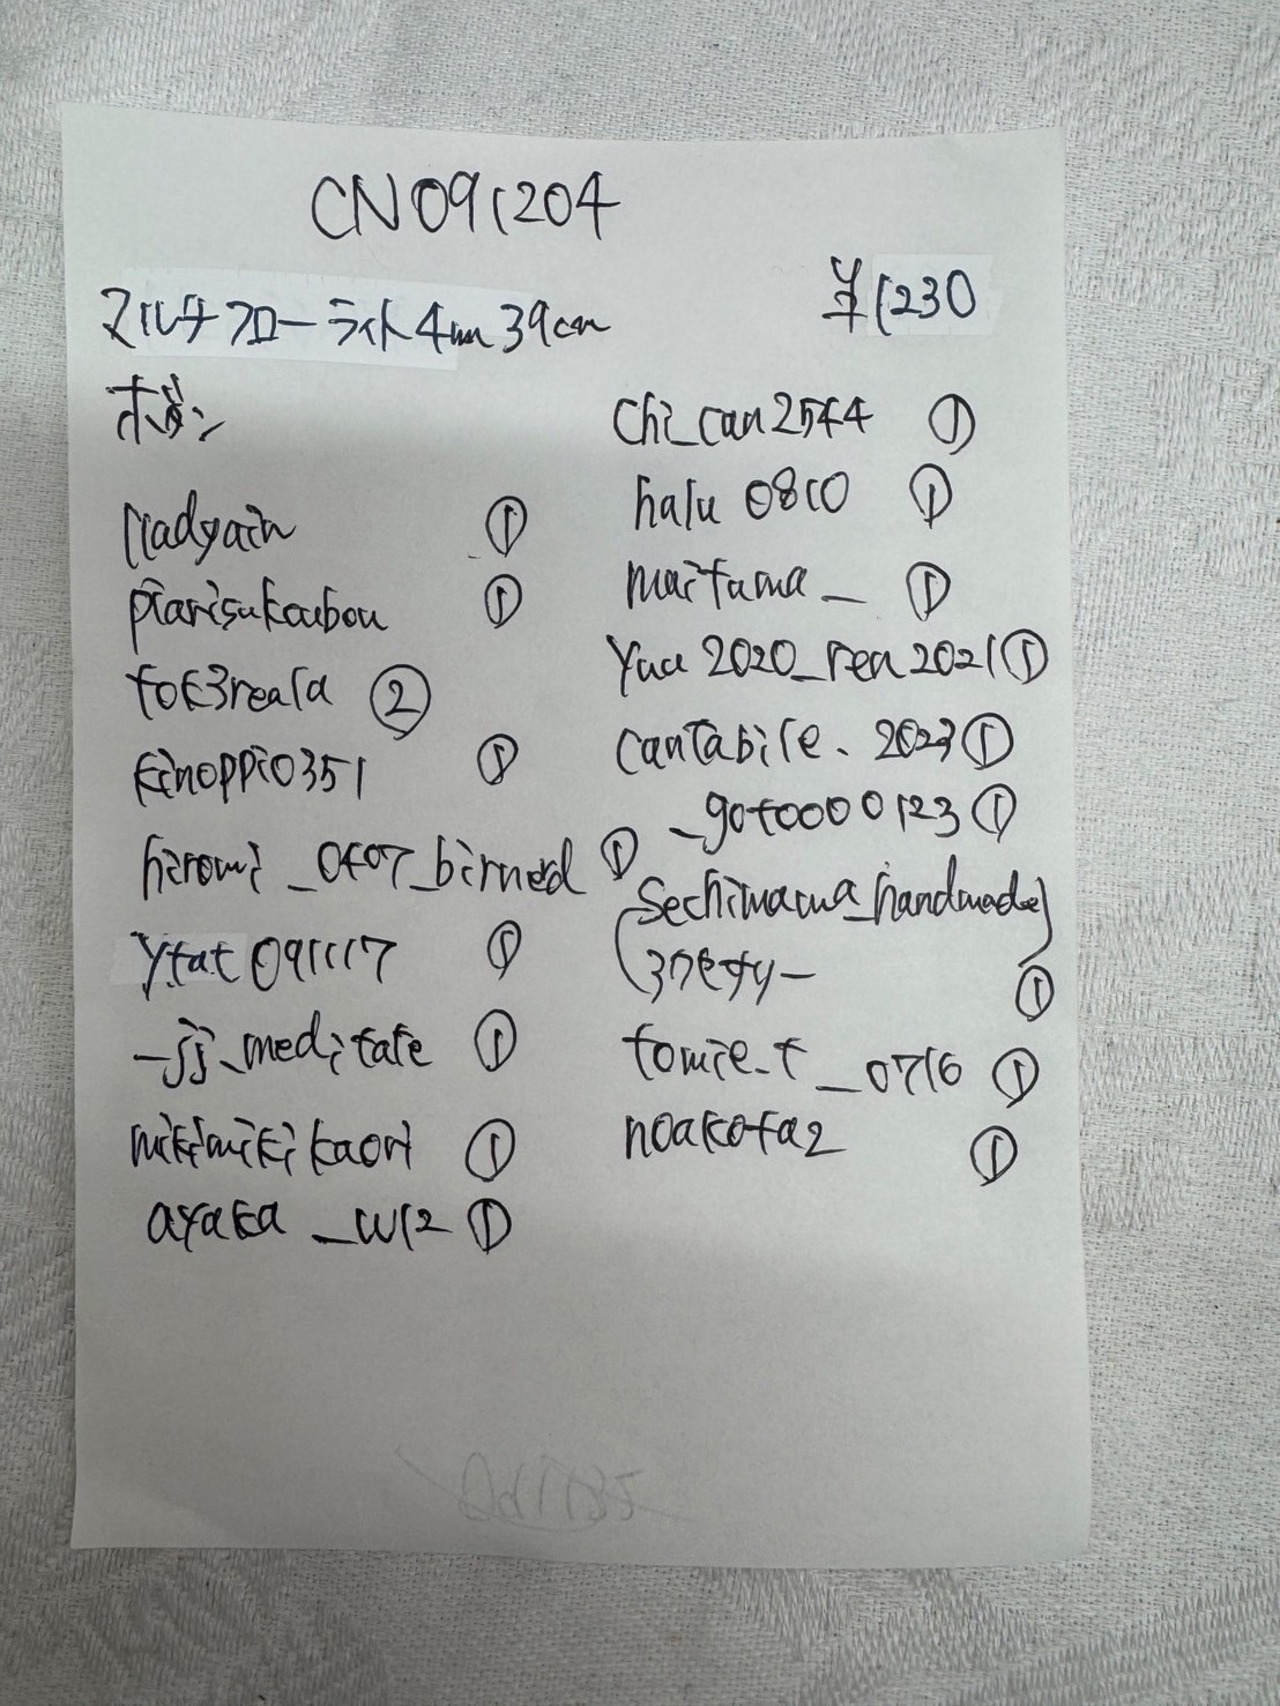 CN091204
¥1230
マルチフローライト4mm39cm
ボタン
piarisukoubou ①
tok3reala ②
kinoppio351 ①
hiromi_0407_birned ①
ytat091117 ①
_jj_meditate ①
mikimikikaori ①
ayaka_w12 ①
chi_can2544 ①
halu0810 ①
maituma_ ①
yuu2020_ren2021 ①
cantabile.2023 ①
_goto000123 ①
(sechimama_handmade)
ー ①
tomie_t_0716 ①
noakota2 ①